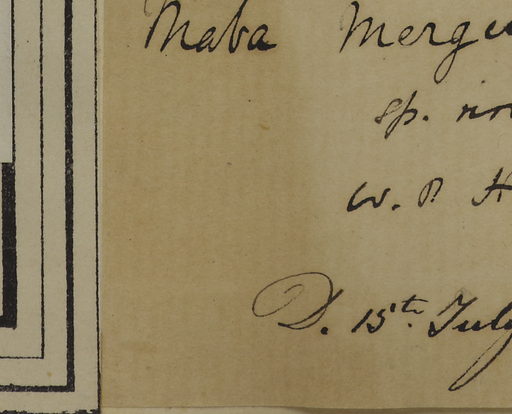 Maba Mergu
sp. no
W. P. H
D. 15th July